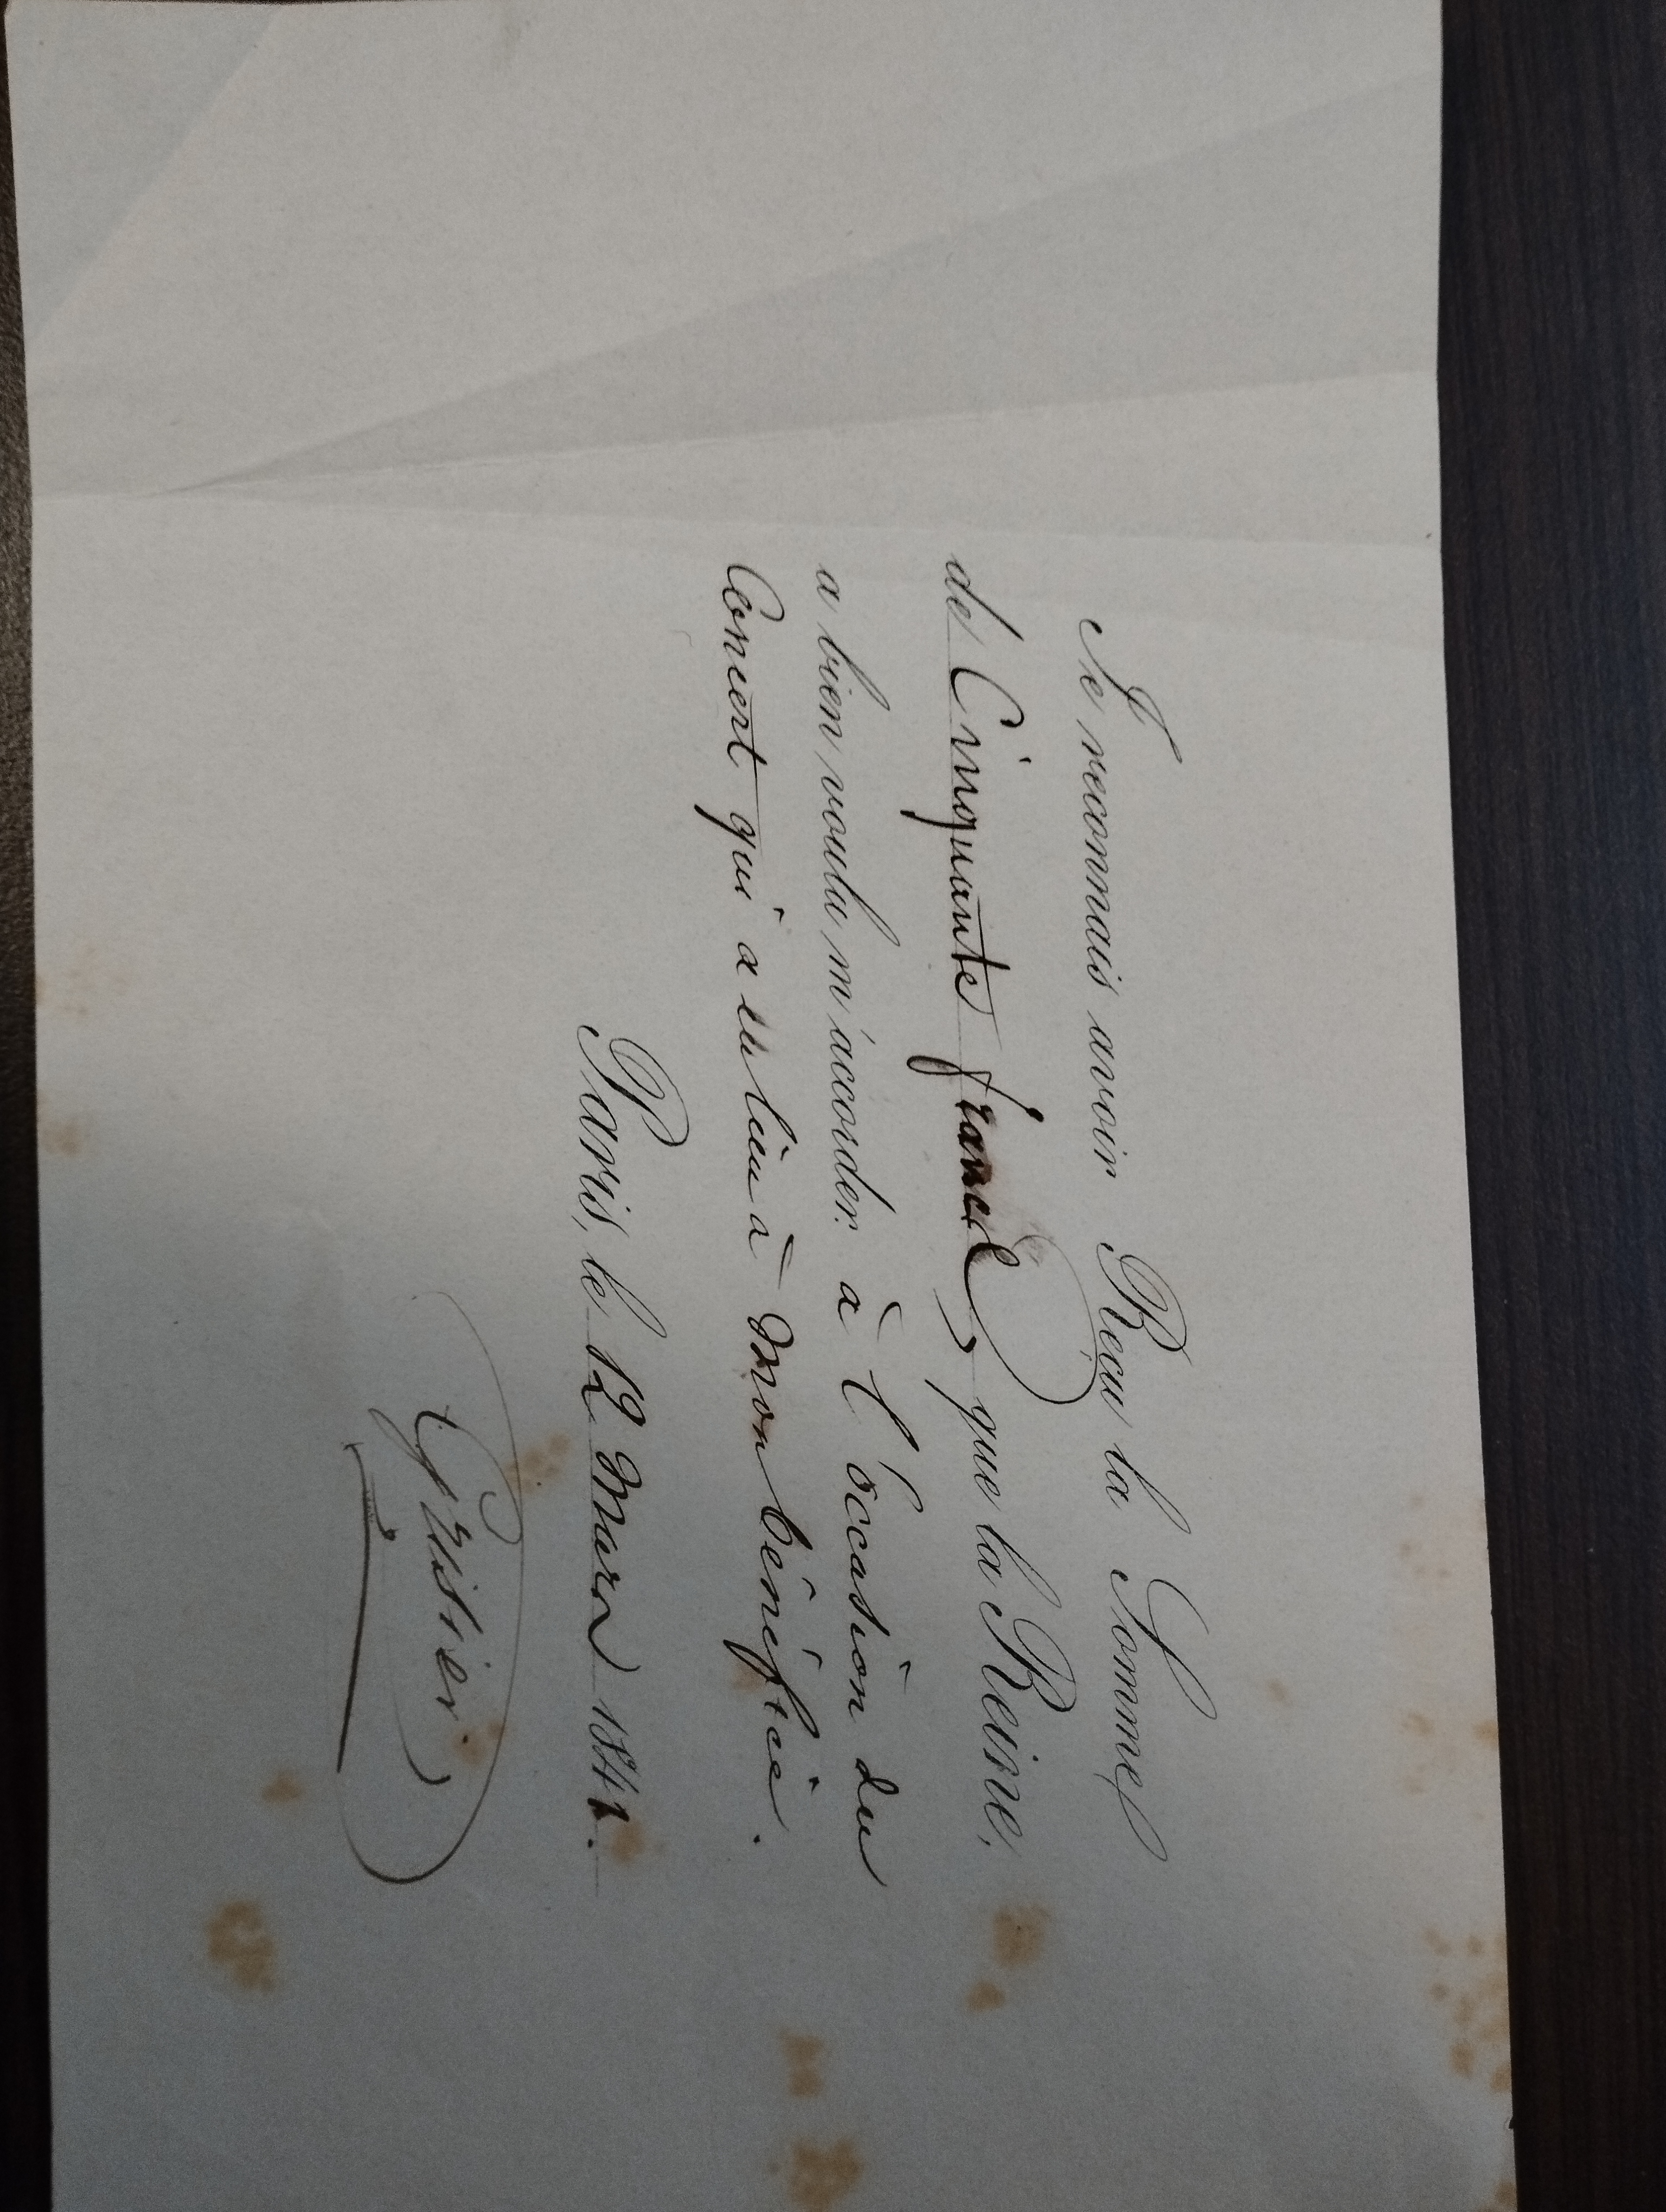 Je reconnais avoir Reçu la Somme
de Cinquante francs que la Reine,
a bien voulu m'accorder à l'occasion du
Concert qui a eu lieu à mon bénéfice.
Paris, le 12 Mars 1841.